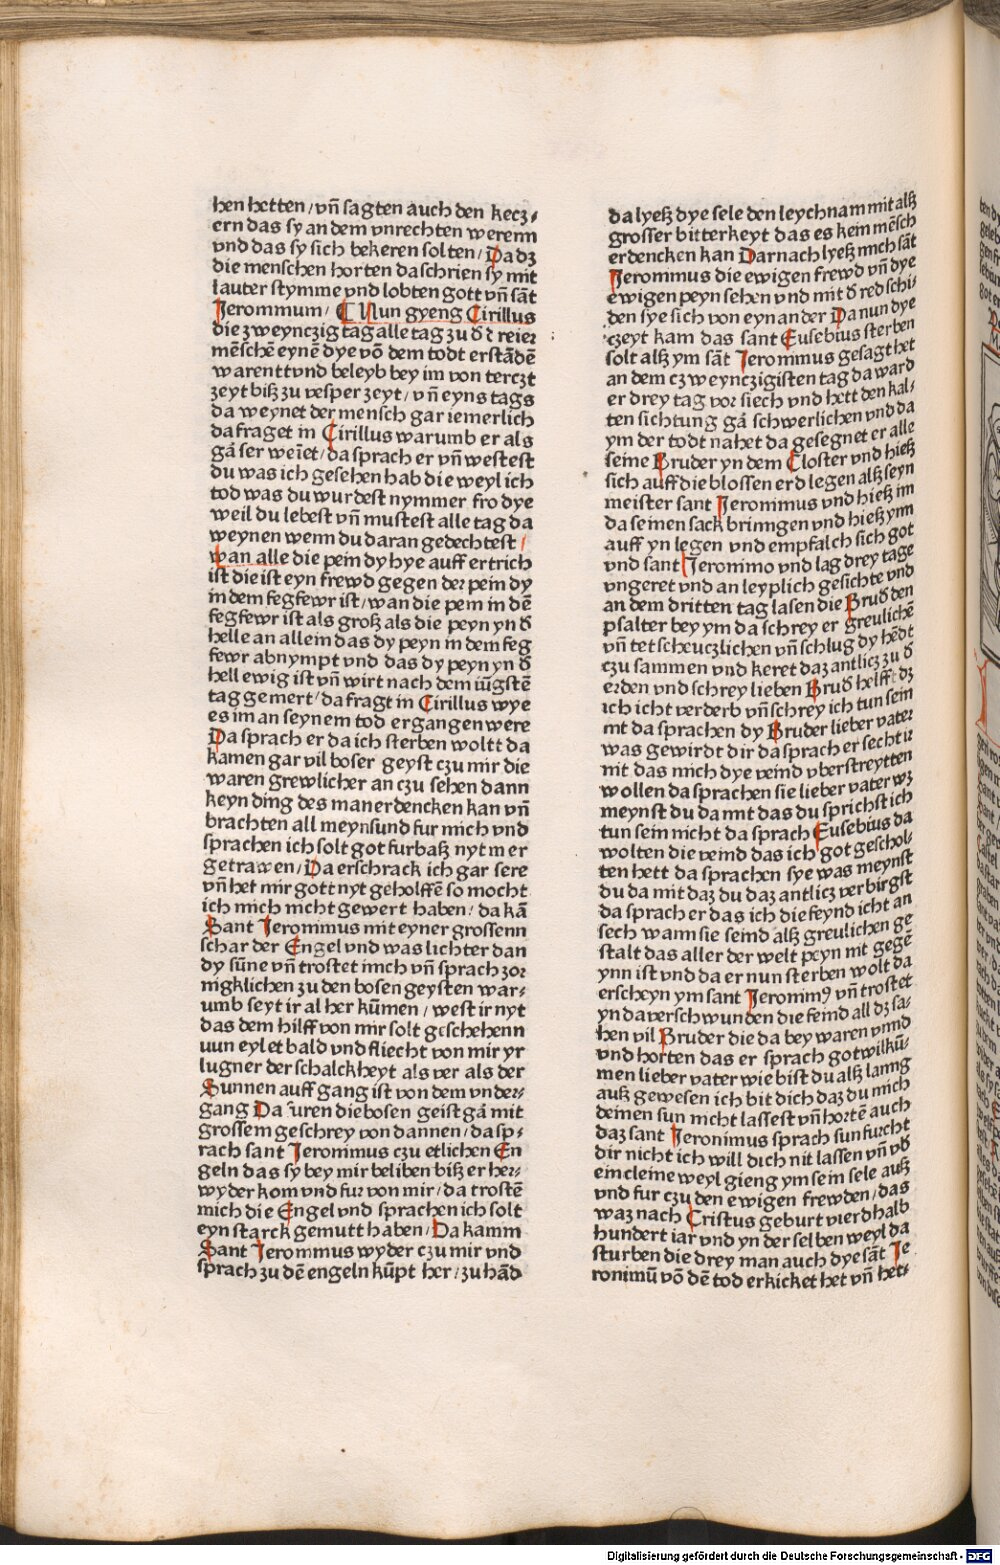 hen hetten / vn̄ sagten auch den kecz⸗
ern das sy an dem vnrechten werenn
vnd das sy sich bekeren solten / Da dz
die menschen horten da schrien sy mit
lauter stymme vnd lobten gott vn̄ sāt
Jeronimum / ¶ Nun gyeng Cirillus
die zweynczig tag alle tag zu d̄ dreier
mēschē eynē dye vō dem todt erstādē
warentt vnd beleyb bey im von terczt
zeyt bisz zu vesper zeyt / vn̄ eyns tags
da weynet der mensch gar iemerlich
da fraget in Cirillus warumb er als
gā ser weīet / da sprach er vn̄ westest
du was ich gesehen hab die weyl ich
tod was du wurdest nymmer fro dye
weil du lebest vn̄ mustest alle tag da
weynen wenn du daran gedechtest /
wan alle die pein dy hye auff ertrich
ist die ist eyn frewd gegen der pein dy
in dem fegfewr ist / wan die pein in dē
fegfewr ist als grosz als die peyn yn d̄
helle an allein das dy peyn in dem feg
fewr abnympt vnd das dy peyn yn d̄
hell ewig ist vn̄ wirt nach dem iūgstē
tag gemert / da fragt in Cirillus wye
es im an seynem tod ergangen were
Da sprach er da ich sterben woltt da
kamen gar vil boser geyst czu mir die
waren grewlicher an czu sehen dann
keyn ding des man erdencken kan vn̄
brachten all meyn sund fur mich vnd
sprachen ich solt got furbasz nyt mer
getrawen / Da erschrack ich gar sere
vn̄ het mir gott nyt geholffē so mocht
ich mich nicht gewert haben / da kā
Sant Jeronimus mit eyner grossenn
schar der Engel vnd was lichter dan
dy sūne vn̄ trostet mich vn̄ sprach zor
nigklichen zu den bosen geysten war⸗
umb seyt ir al her kūmen / west ir nyt
das dem hilff von mir solt geschehenn
nun eylet bald vnd fliecht von mir yr
lugner der schalckheyt als ver als der
Sunnen auff gang ist von dem vnder⸗
gang Da furen die bosen geist gā mit
grossem geschrey von dannen / da sp⸗
rach sant Jeronimus czu etlichen En
geln das sy bey mir beliben bisz er her⸗
wyder kom vnd fur von mir / da trostē
mich die Engel vnd sprachen ich solt
eyn starck gemutt haben / Da kamm
Sant Jeronimus wyder czu mir vnd
sprach zu dē engeln kūpt her / zu hād
da lyesz dye sele den leychnam mit alsz
grosser bitterkeyt das es kein mēsch
erdencken kan Darnach lyesz mich sāt
Jeronimus die ewigen frewd vn̄ dye
ewigen peyn sehen vnd mit d̄ red schi⸗
den sye sich von eynander Da nun dye
czeyt kam das sant Eusebius sterben
solt alsz ym sāt Jeronimus gesagt het
an dem czweynczigisten tag da ward
er drey tag vor siech vnd hett den kal⸗
ten sichtung gā schwerlichen vnd da
ym der todt nahet da gesegnet er alle
seine Bruder yn dem Closter vnd hiesz
sich auff die blossen erd legen alsz seyn
meister sant Jeronimus vnd hiesz im
da seinen sack brinngen vnd hiesz ynn
auff yn legen vnd empfalch sich got
vnd sant Jeronimo vnd lag drey tage
vngeret vnd an leyplich gesichte vnd
an dem dritten tag lasen die Brud̄ den
psalter bey ym da schrey er greulichē
vn̄ tet scheuczlichen vn̄ schlug dy hēdt
czu sammen vnd keret daz antlicz zu d̄
erden vnd schrey lieben Brud̄ helfft dz
ich icht verderb vn̄ schrey ich tun sein
nit da sprachen dy Bruder lieber vater
was gewirdt dir da sprach er secht ir
nit das mich dye veind vberstreytten
wollen da sprachen sie lieber vater wz
meynst du da mit das du sprichst ich
tun sein nicht da sprach Eusebius da
wolten die veind das ich got geschol⸗
ten hett da sprachen sye was meynst
du da mit daz du daz antlicz verbirgst
da sprach er das ich die feynd icht an
sech wann sie seind alsz greulichen ge
stalt das aller der welt peyn nit gegē
ynn ist vnd da er nun sterben wolt da
erscheyn ym sant Jeronimꝰ vn̄ trostet
yn da verschwunden die feind all dz sa⸗
hen vil Bruder die da bey waren vnnd
vnd horten das er sprach got wilkū⸗
men lieber vater wie bist du alsz lanng
ausz gewesen ich bit dich daz du mich
deinen sun nicht lassest vn̄ hortē auch
daz sant Jeronimus sprach sun furcht
dir nicht ich will dich nit lassen vn̄ vb̄
ein cleine weyl gieng ym sein sele ausz
vnd fur czu den ewigen frewden / das
waz nach Cristus geburt vierdhalb
hundert iar vnd yn der selben weyl da
sturben die drey man auch dye sāt Je
ronimū vō dē tod erkicket het vn̄ het⸗
Digitalisierung gefördert durch die Deutsche Forschungsgemeinschaft - DFG